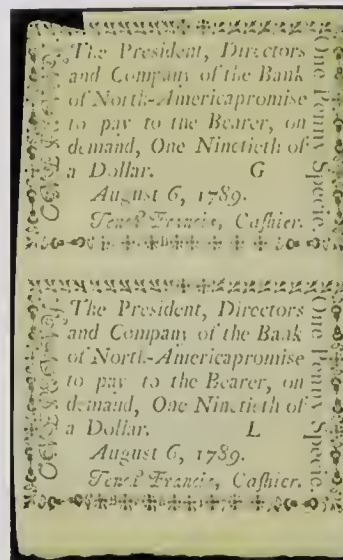 The President, Directors
and Company of the Bank
of North-America promise
to pay to the Bearer, on
demand, One Ninetieth of
a Dollar. G
August 6, 1789.
Tench Francis, Cashier.
One Penny Specie.
The President, Directors
and Company of the Bank
of North-America promise
to pay to the Bearer, on
demand, One Ninetieth of
a Dollar. L
August 6, 1789.
Tench Francis, Cashier.
One Penny Specie.